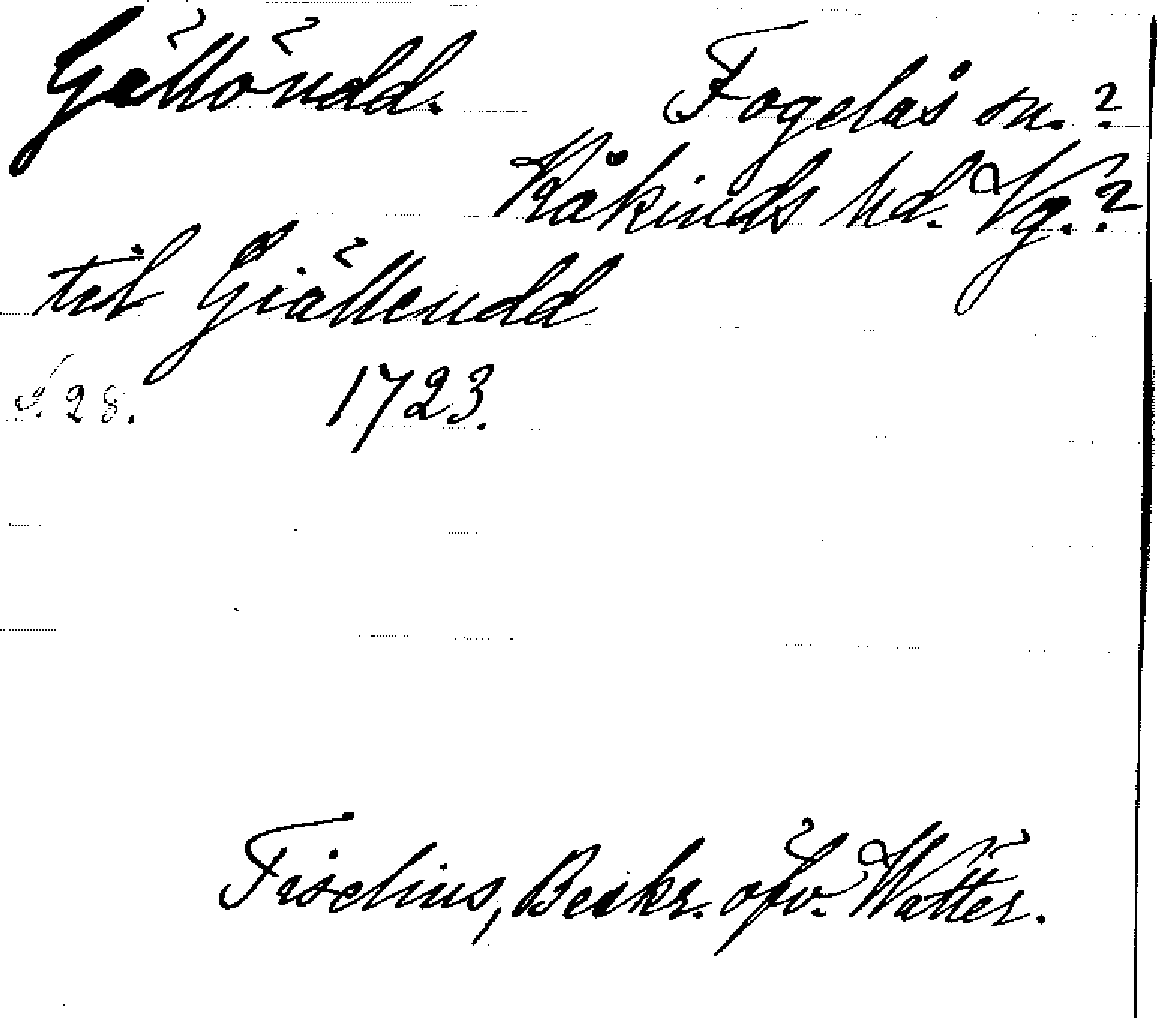 Gällöudd. Fogelås sn.?
Kåkinds hd. Vg.?
til Giälleudd
S. 28. 1723.
Tiselius, Beskr. öfv. Wätter.